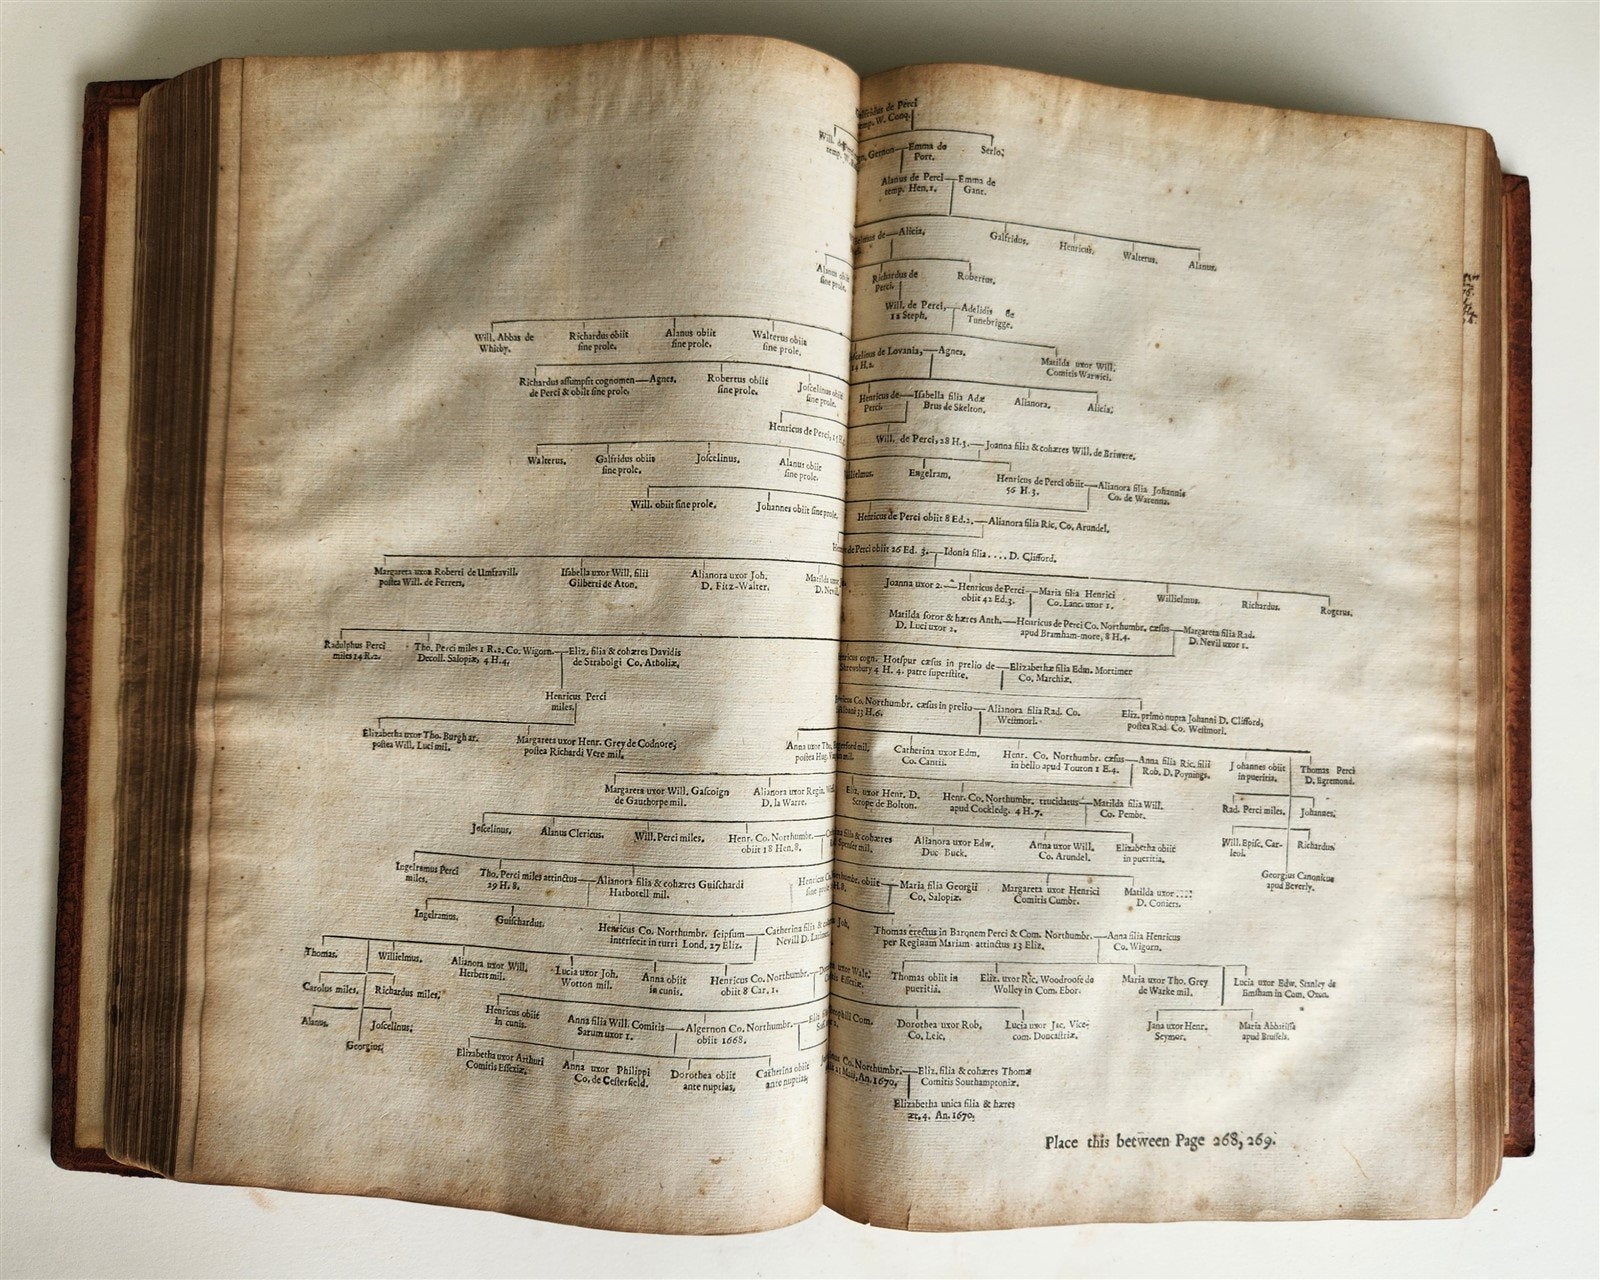 de Perci
temp. W. Conq.
Will.
temp. W.
Gernon—Emma de
Port.
Serlo.
Alanus de Perci—Emma de
temp. Hen. 1. Gant.
de—Alicia. Galfridus. Henricus. Walterus. Alanus.
Alanus obiit
sine prole.
Richardus de
Perci.
Robertus.
Will. de Perci,—Adelidis de
12 Steph. Tunebrigge.
Will. Abbas de
Whitby.
Richardus obiit
sine prole.
Alanus obiit
sine prole.
Walterus obiit
sine prole.
de Lovania,—Agnes.
H. 2.
Matilda uxor Will.
Comitis Warwici.
Richardus assumpsit cognomen—Agnes.
de Perci & obiit sine prole.
Robertus obiit
sine prole.
Joscelinus obiit
sine prole.
Henricus de—Isabella filia Adæ
Perci. Brus de Skelton.
Alianora. Alicia.
Henricus de Perci,
Will. de Perci, 28 H. 3.—Joanna filia & cohæres Will. de Briwere.
Walterus.
Galfridus obiit
sine prole.
Joscelinus.
Alanus obiit
sine prole.
Engelram.
Henricus de Perci obiit—Alianora filia Johannis
56 H. 3. Co. de Warenna.
Will. obiit sine prole. Johannes obiit sine prole.
Henricus de Perci obiit 8 Ed. 2.—Alianora filia Ric. Co. Arundel.
de Perci obiit 26 Ed. 3.—Idonia filia .... D. Clifford.
Margareta uxor Roberti de Umfravill.
postea Will. de Ferrers.
Isabella uxor Will. filii
Gilberti de Aton.
Alianora uxor Joh.
D. Fitz-Walter.
Matilda
D. Nevill
Joanna uxor 2.—Henricus de Perci—Maria filia Henrici
obiit 42 Ed. 3. Co. Lanc. uxor 1.
Willielmus. Richardus. Rogerus.
Matilda soror & hæres Anth.—Henricus de Perci Co. Northumbr. cæsus—Margareta filia Rad.
D. Luci uxor 2. apud Bramham-more, 8 H. 4. D. Nevil uxor 1.
Radulphus Perci
miles 14 R. 2.
Tho. Perci miles 1 R. 2. Co. Wigorn.—Eliz. filia & cohæres Davidis
Decoll. Salopiæ, 4 H. 4. de Strabolgi Co. Atholiæ.
cogn. Hotspur cæsus in prelio de—Elizabetha filia Edm. Mortimer
Shrewsbury 4 H. 4. patre superstite. Co. Marchiæ.
Henricus Perci
miles.
Co. Northumbr. cæsus in prelio—Alianora filia Rad. Co.
33 H. 6. Westmorl.
Eliz. primo nupta Johanni D. Clifford,
postea Rad. Co. Westmorl.
Elizabetha uxor Tho. Burgh ar.
postea Will. Luci mil.
Margareta uxor Henr. Grey de Codnore,
postea Richardi Vere mil.
Anna uxor Tho. mil.
postea Hug. mil.
Catherina uxor Edm.
Co. Cantii.
Henr. Co. Northumbr. cæsus—Anna filia Ric. filii
in bello apud Touton 1 E. 4. Rob. D. Poynings.
Johannes obiit
in pueritia.
Thomas Perci
D. Egremond.
Margareta uxor Will. Gascoign
de Gauthorpe mil.
Alianora uxor Regin.
D. la Warre.
Eliz. uxor Henr. D.
Scrope de Bolton.
Henr. Co. Northumbr. trucidatus—Matilda filia Will.
apud Cockledg. 4 H. 7. Co. Pembr.
Rad. Perci miles. Johannes.
Joscelinus. Alanus Clericus. Will. Perci miles.
Henr. Co. Northumbr.
obiit 18 Hen. 8.
filia & cohæres
mil.
Alianora uxor Edw.
Duc Buck.
Anna uxor Will.
Co. Arundel.
Elizabetha obiit
in pueritia.
Will. Episc. Car-
leol.
Richardus.
Ingelramus Perci
miles.
Tho. Perci miles attinctus—Alianora filia & cohæres Guischardi
29 H. 8. Harbotell mil.
Henricus
sine
obiit—Maria filia Georgii
H. 8. Co. Salopiæ.
Margareta uxor Henrici
Comitis Cumbr.
Matilda uxor ....
D. Coniers.
Georgius Canonicus
apud Beverly.
Ingelramus. Guischardus.
Henricus Co. Northumbr. seipsum—Catherina filia &
interfecit in turri Lond. 27 Eliz. Nevill D.
Joh.
Thomas erectus in Baronem Perci & Com. Northumbr.—Anna filia Henrici
per Reginam Mariam attinctus 13 Eliz. Co. Wigorn.
Thomas. Willielmus.
Alianora uxor Will.
Herbert mil.
Lucia uxor Joh.
Wotton mil.
Anna obiit
in cunis.
Henricus Co. Northumbr.
obiit 8 Car. 1.
uxor Walt.
Essexiæ.
Thomas obiit in
pueritia.
Eliz. uxor Ric. Woodroofe de
Wolley in Com. Ebor.
Maria uxor Tho. Grey
de Warke mil.
Lucia uxor Edw. Stanley de
Eimsham in Com. Oxon.
Carolus miles. Richardus miles.
Henricus obiit
in cunis.
Anna filia Will. Comitis—Algernon Co. Northumbr.
Sarum uxor 1. obiit 1668.
Com.
Dorothea uxor Rob.
Co. Leic.
Lucia uxor Jac. Vice-
com. Doncastriæ.
Jana uxor Henr.
Seymor.
Maria Abbatissa
apud Brussels.
Alanus. Joscelinus.
Georgius.
Elizabetha uxor Arthuri
Comitis Essexiæ.
Anna uxor Philippi
Co. de Cesterfeild.
Dorothea obiit
ante nuptias.
Catherina obiit
ante nuptias.
Co. Northumbr.—Eliz. filia & cohæres Thomæ
21 Maii, An. 1670. Comitis Southamptoniæ.
Elizabetha unica filia & hæres
æt. 4. An. 1670.
Place this between Page 268, 269.